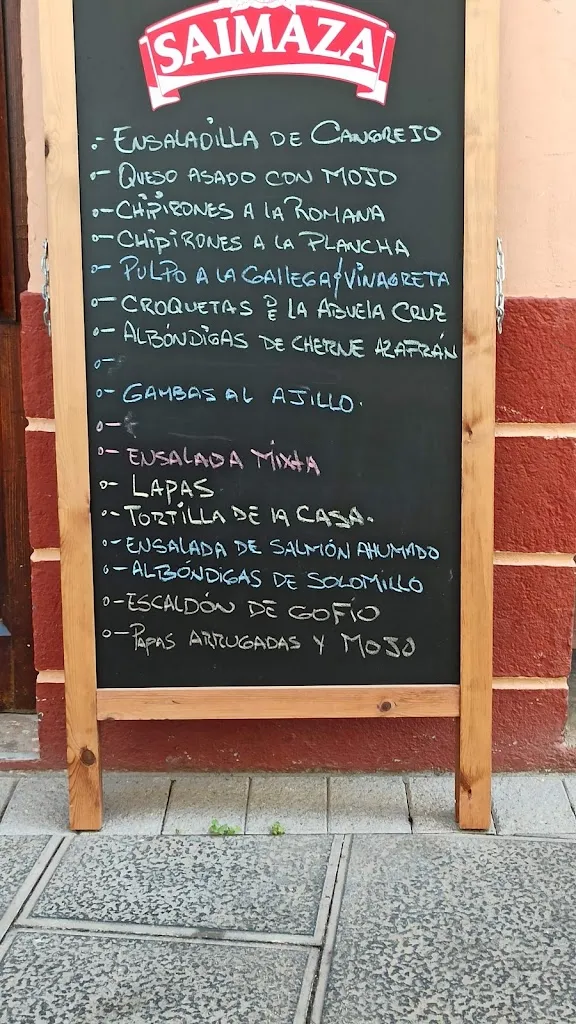 SAIMAZA
.- ENSALADILLA DE CANGREJO
o- QUESO ASADO CON MOJO
o- CHIPIRONES A LA ROMANA
o- CHIPIRONES A LA PLANCHA
o- PULPO A LA GALLEGA/VINAGRETA
o- CROQUETAS DE LA ABUELA CRUZ
o- ALBÓNDIGAS DE CHERNE AZAFRÁN
o-
o- GAMBAS AL AJILLO.
o-
o- ENSALADA MIXTA
o- LAPAS
o- TORTILLA DE LA CASA.
o- ENSALADA DE SALMÓN AHUMADO
o- ALBÓNDIGAS DE SOLOMILLO
o- ESCALDÓN DE GOFIO
o- PAPAS ARRUGADAS Y MOJO